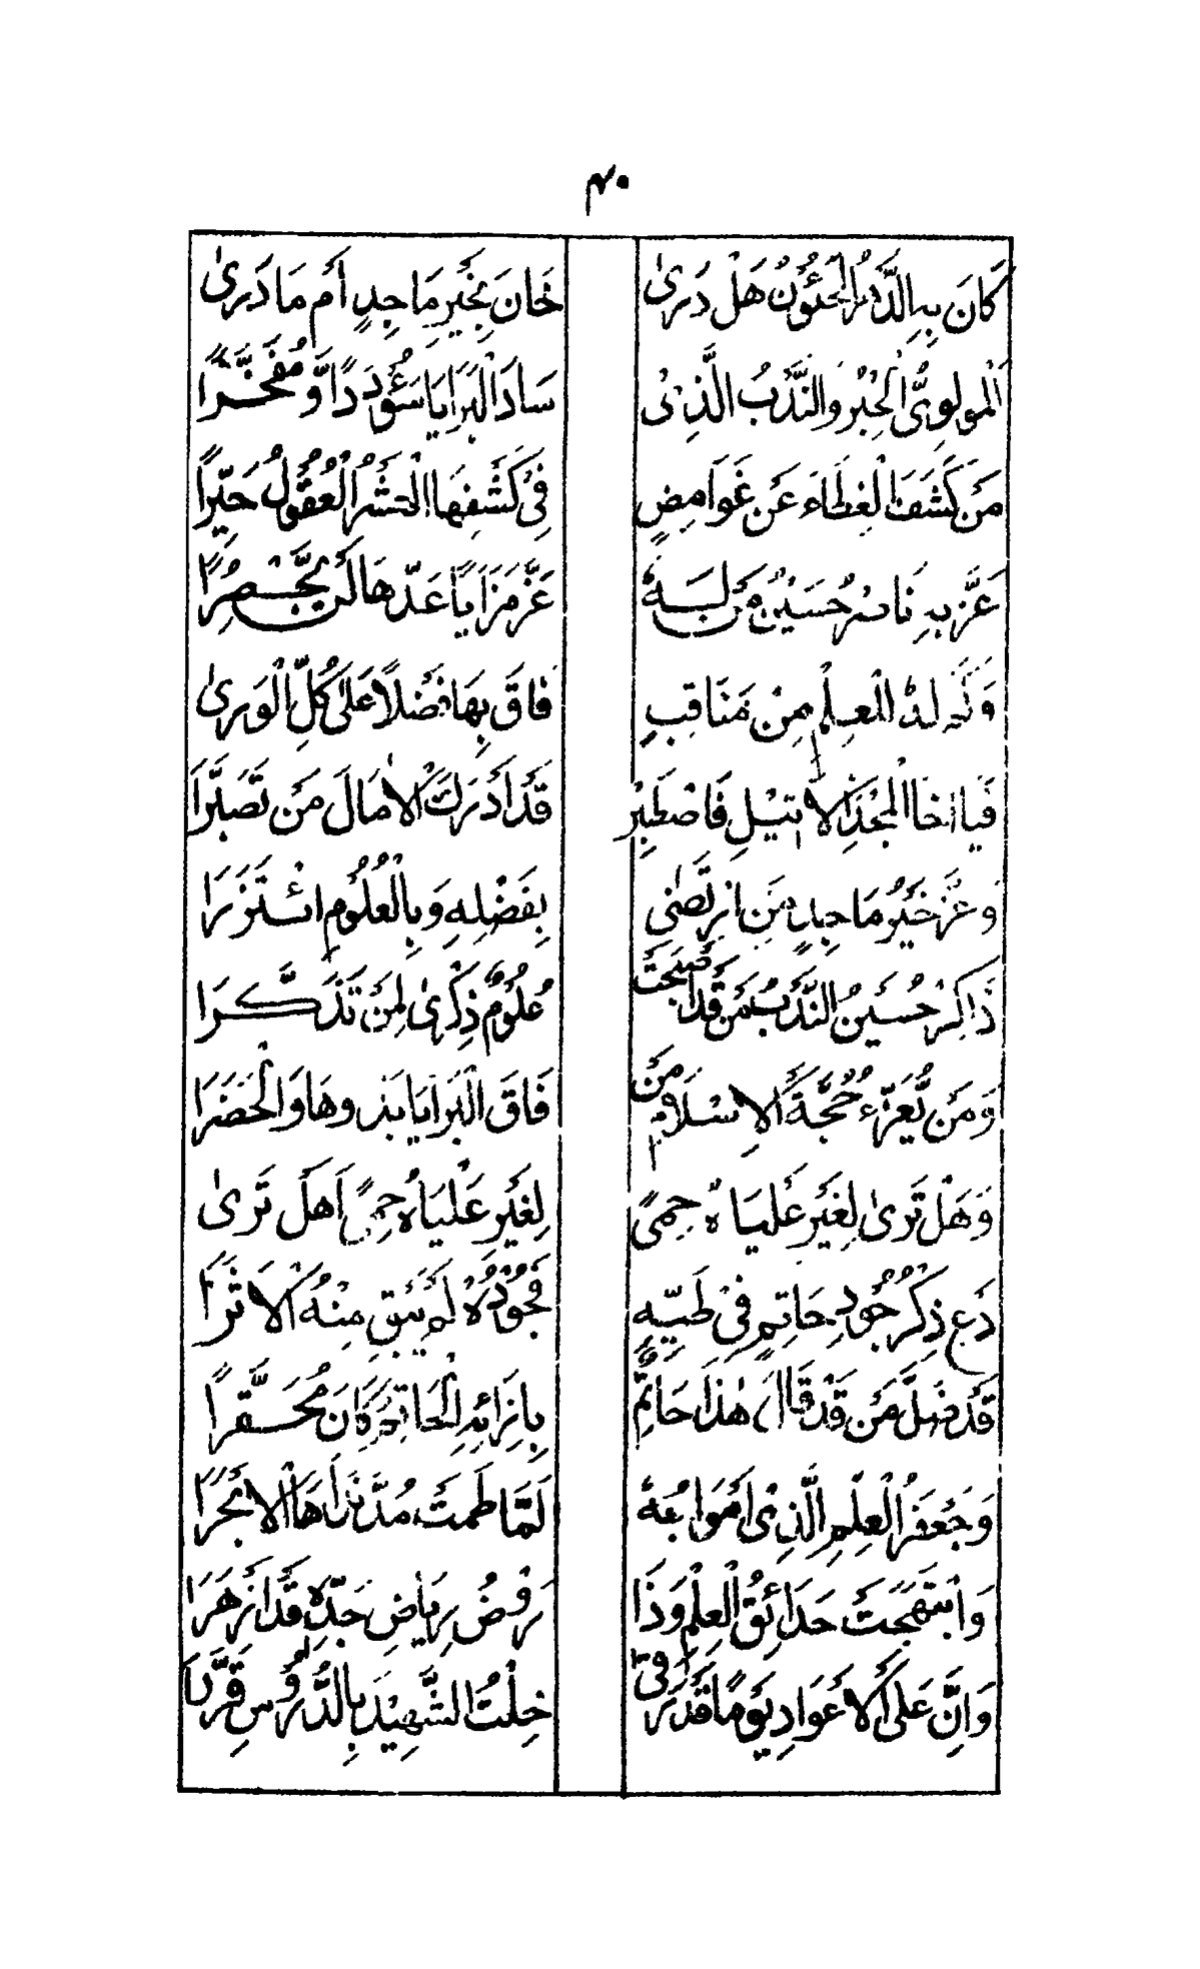 ۴۰
كَانَ بِهِ الدَّهْرُ الْخَئُوْنُ هَلْ دَرىٰ خَانَ بِخَيْرِ مَاجِدٍ أَمْ مَا دَرىٰ
اَلْمَولَوِىُّ الْحِبْرُ وَالنَّدْبُ الَّذِىْ سَادَ الْبَرَايَا سَؤُدَدًا وَّ مَفْخَرًا
مَنْ كَشَفَ الْغِطَاءَ عَنْ غَوَامِضٍ فِىْ كَشْفِهَا الْعُقُوْلُ حَيَّرًا
عَزَّ بِهِ نَاصِرُ حُسَيْنٍ مَنْ لَهُ عَزَّ مَزَايًا عَدُّهَا لَنْ يُّحْصَرَا
وَكَمْ لَهُ الْعِلْمِ مِنْ مَنَاقِبٍ فَاقَ بِهَا فَضْلًا عَلىٰ كُلِّ الْوَرىٰ
فَيَا اَخَا الْمَجْدِ الْاَثِيْلِ فَاصْطَبِرْ قَدْ اَدْرَكَ الْاٰمَالَ مَنْ تَصَبَّرَا
وَعَزِّ خَيْرَ مَاجِدٍ مَنِ ارْتَضىٰ بِفَضْلِهِ وَبِالْعُلُوْمِ اسْتَزَرَا
ذَاكِرُ حُسَيْنِ النَّدْبُ مَنْ قَدْ اَصْبَحَتْ عُلُوْمُهُ ذِكْرىٰ لِمَنْ تَذَكَّرَا
وَمَنْ يُّعَزّٰى حُجَّةُ الْاِسْلَامِ مَنْ فَاقَ الْبَرَايَا بَذْوَهَا وَالْحَضَرَا
وَهَلْ تَرىٰ لِغَيْرِ عَلْيَاهُ حِمىً لِغَيْرِ عَلْيَاهُ حِمىً اَهَلْ تَرىٰ
دَعْ ذِكْرَ جُوْدِ حَاتِمٍ فِىْ طَيِّهِ فَجُوْدُهُ لَمْ يَبْقَ مِنْهُ الْاَثَرَا
قَدْ ضَلَّ مَنْ قَدْ قَالَ هٰذَا حَاتِمٌ بِاِزَائِهِ الْحَاتِمُ كَانَ مُحَقَّرًا
وَجَعْفَرُ الْعِلْمِ الَّذِىْ اَمْوَاجُهُ لَمَّا طَمَتْ مُدَّ نَدَاهَا الْاَبْحُرَا
وَابْتَهَجَتْ حَدَائِقُ الْعِلْمِ وَذَا رَوْضُ رِيَاضِ جَدِّهِ قَدْ اَزْهَرَا
وَاِنْ عَلىٰ الْاَعْوَادِ يَوْمًا قَدْ رَقىٰ خِلْتُ الشَّهِيْدَ بِالدُّرُوْسِ قَرَّرَا